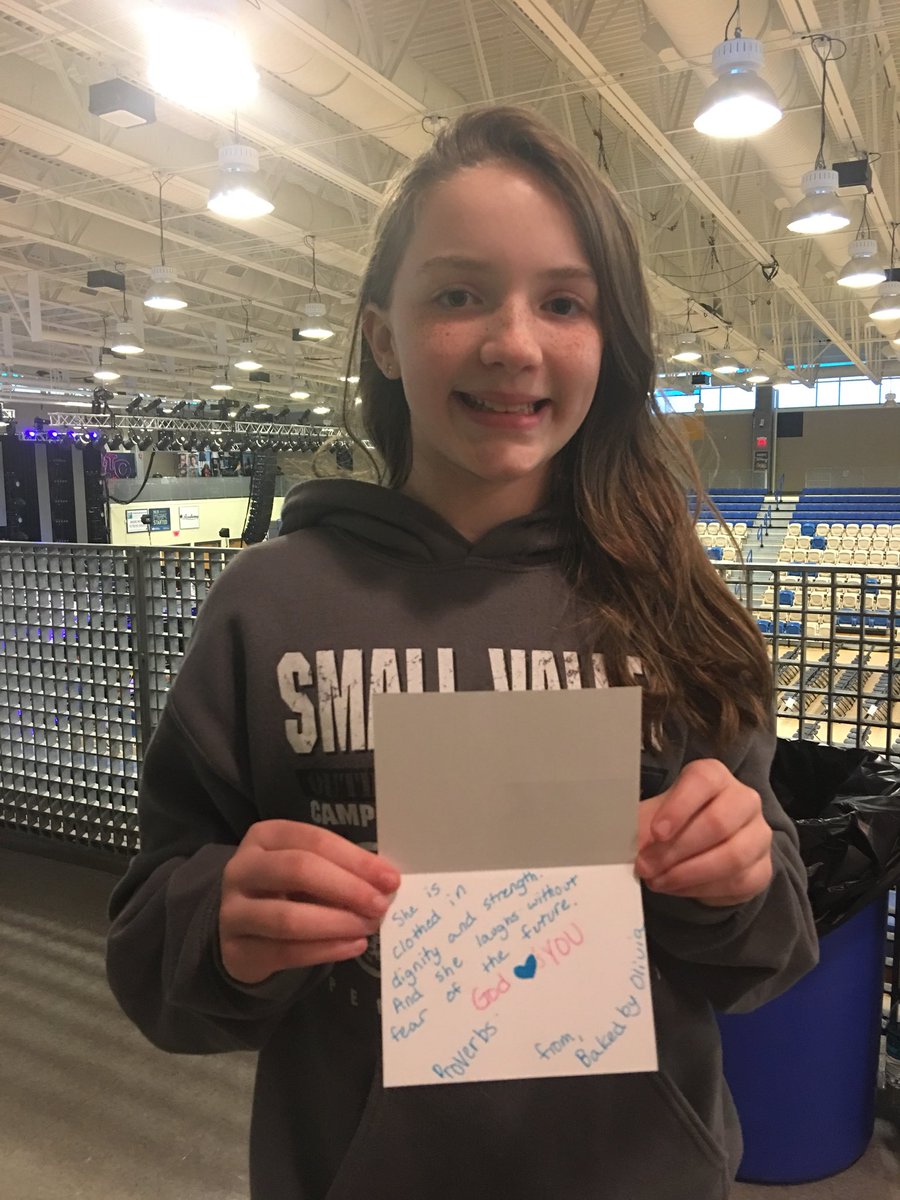 SMALL
CAMP
She is
clothed in
dignity and strength.
And she laughs without
fear of the future.
God YOU
Proverbs
from,
Baked by Olivia